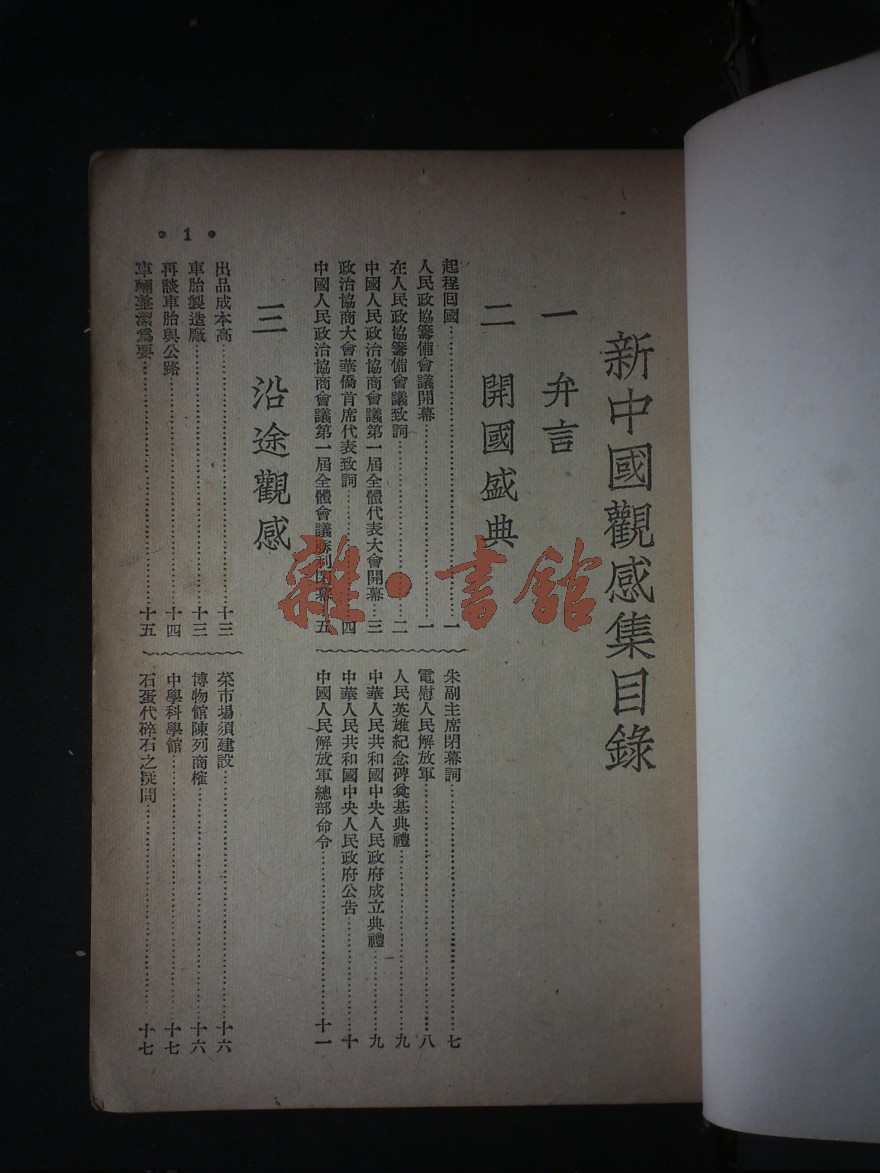 新中國觀感集目錄
一 弁言
二 開國盛典
起程回國……一
人民政協籌備會議開幕……一
在人民政協籌備會議致詞……二
中國人民政治協商會議第一屆全體代表大會開幕……三
政治協商大會華僑首席代表致詞……四
中國人民政治協商會議第一屆全體會議勝利閉幕…五
朱副主席閉幕詞……七
電慰人民解放軍……八
人民英雄紀念碑奠基典禮……九
中華人民共和國中央人民政府成立典禮……九
中華人民共和國中央人民政府公告……十
中國人民解放軍總部命令……十一
三 沿途觀感
出品成本高……十三
車胎製造廠……十三
再談車胎與公路……十四
車輛整潔為要……十五
菜市場須建設……十六
博物館陳列商榷……十六
中學科學館……十七
石蛋代碎石之疑問……十七
• 1 •
雜·書館